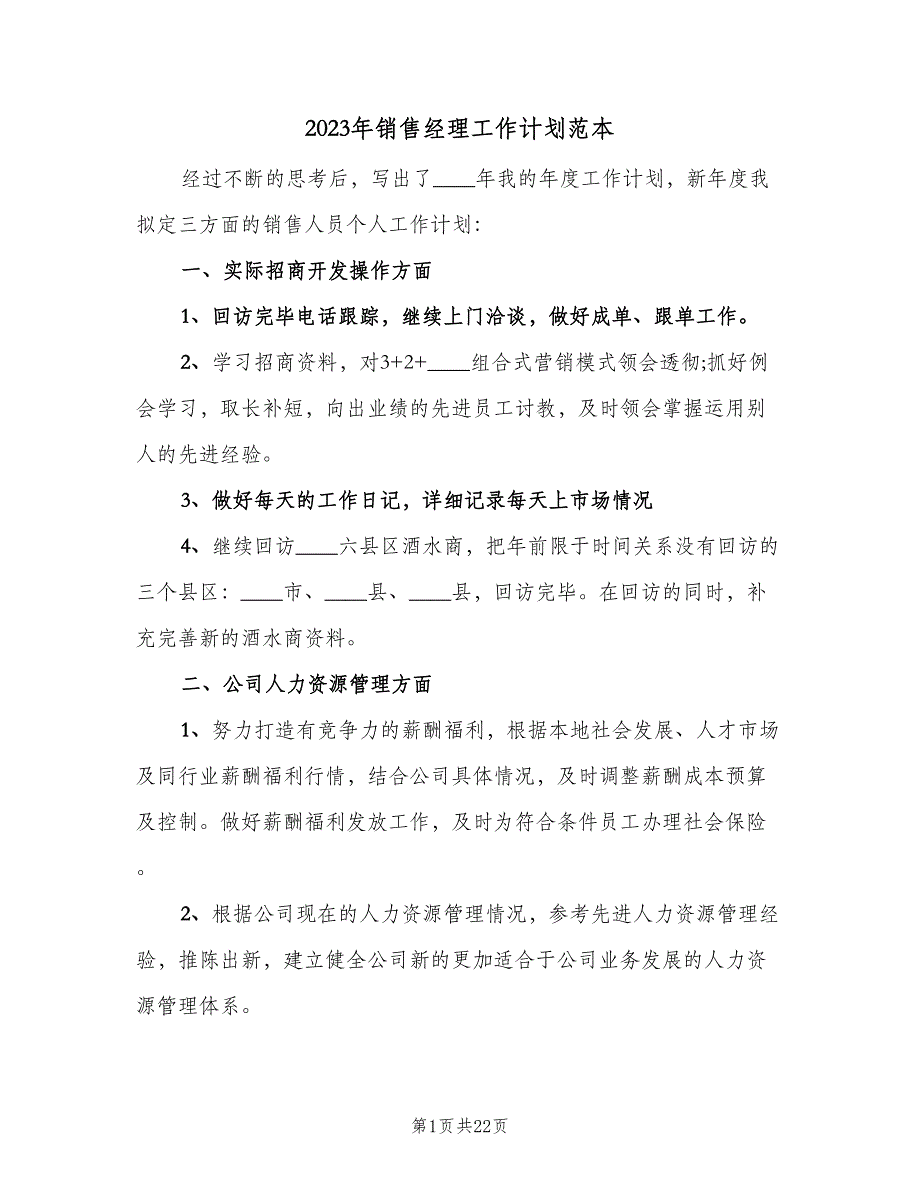 2023年销售经理工作计划范本
经过不断的思考后，写出了____年我的年度工作计划，新年度我
拟定三方面的销售人员个人工作计划：
一、实际招商开发操作方面
1、回访完毕电话跟踪，继续上门洽谈，做好成单、跟单工作。
2、学习招商资料，对3+2+____组合式营销模式领会透彻;抓好例
会学习，取长补短，向出业绩的先进员工讨教，及时领会掌握运用别
人的先进经验。
3、做好每天的工作日记，详细记录每天上市场情况
4、继续回访____六县区酒水商，把年前限于时间关系没有回访的
三个县区：____市、____县、____县，回访完毕。在回访的同时，补
充完善新的酒水商资料。
二、公司人力资源管理方面
1、努力打造有竞争力的薪酬福利，根据本地社会发展、人才市场
及同行业薪酬福利行情，结合公司具体情况，及时调整薪酬成本预算
及控制。做好薪酬福利发放工作，及时为符合条件员工办理社会保险
。
2、根据公司现在的人力资源管理情况，参考先进人力资源管理经
验，推陈出新，建立健全公司新的更加适合于公司业务发展的人力资
源管理体系。
第1页共22页